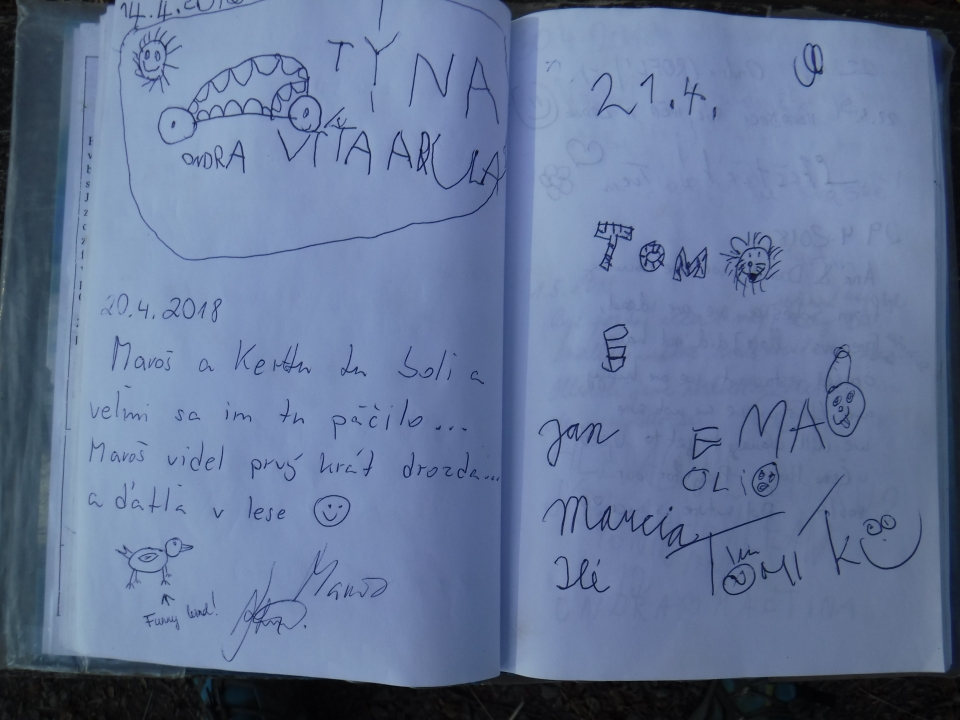 14.4.2018
TÝNA
ONDRA VÍŤA ARULA
20.4.2018
Maroš a Kerttu tu boli a
veľmi sa im tu páčilo...
Maroš videl prvý krát drozda...
a ďatľa v lese
Funny bird!
Maroš
21.4.
TOM
E
Jan EMA
OLi
Marcia Tomík